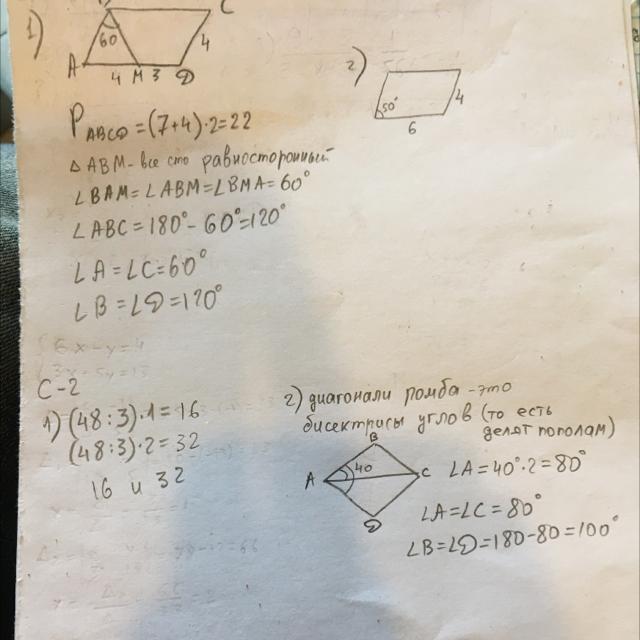 1)
C
60
A
4 M 3 D
4
P ABCD = (7+4)·2=22
△ ABM - все сто равносторонный
∠BAM=∠ABM=∠BMA=60°
∠ABC=180°-60°=120°
∠A=∠C=60°
∠B=∠D=120°
2)
50°
4
6
С-2
1) (48:3)·1=16
(48:3)·2=32
16 и 32
2) диагонали ромба - это
бисектрисы углов (то есть
делят пополам)
B
A
40
C
D
∠A=40°·2=80°
∠A=∠C=80°
∠B=∠D=180-80=100°